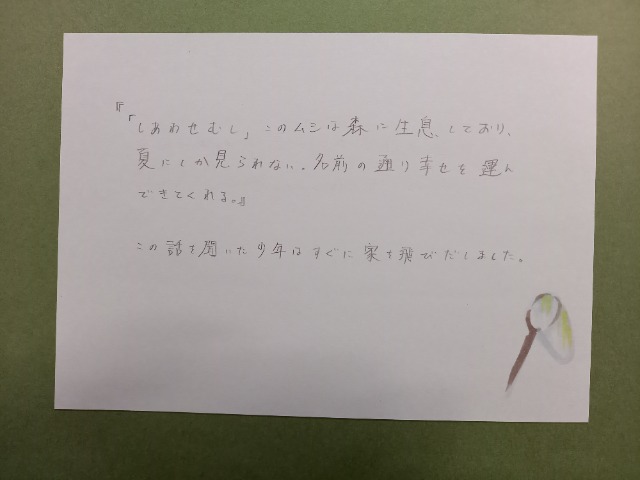 『「しあわせむし」このムシは森に生息しており、
夏にしか見られない。名前の通り幸せを運ん
できてくれる。』
この話を聞いた少年はすぐに家を飛びだしました。